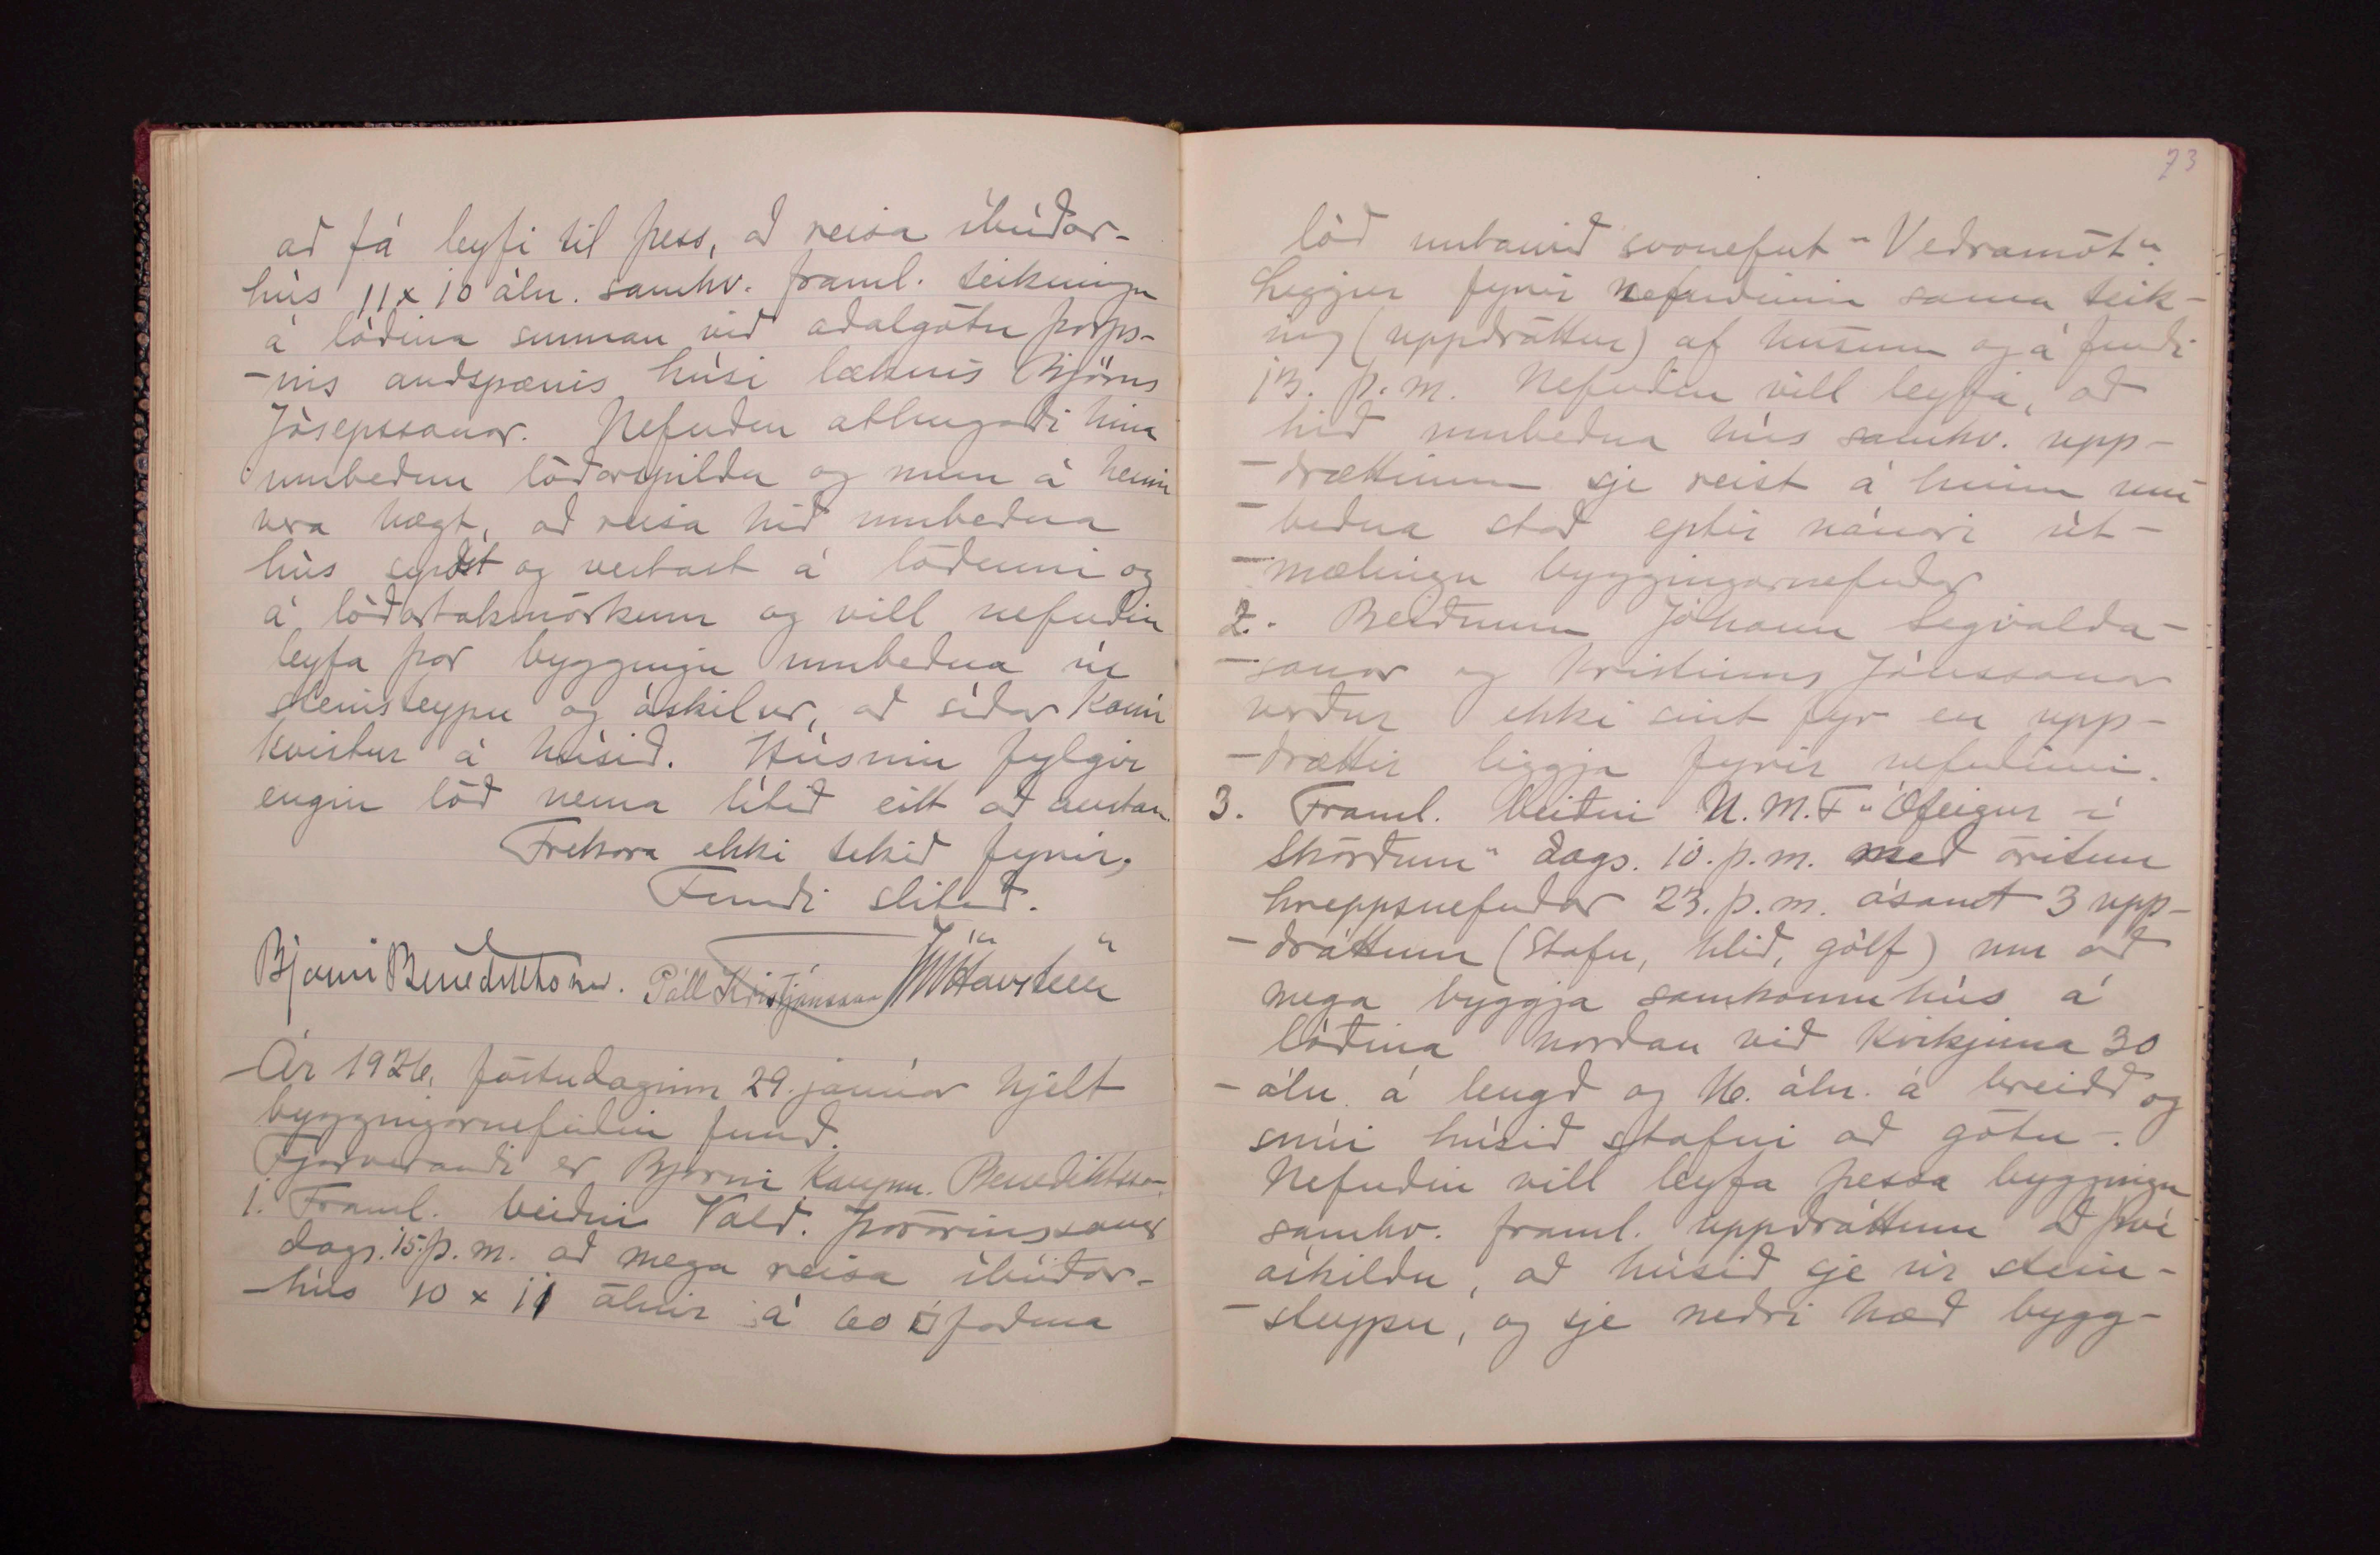 að fá leyfi til þess, að reisa íbúðar-
hús 11 x 10 áln. samkv. framl. teikningu
á lóðina sunnan við aðalgötu þorps-
-ins andspænis húsi læknis Björns
Jósepssonar. Nefndin athugaði hina
umbeðnu lóðarspildu og mun á henni
vera hægt, að reisa hið umbeðna
hús syðst og vestast á lóðinni og
á lóðartakmörkum og vill nefndin
leyfa þar byggingu umbeðna úr
steinsteypu og áskilur, að síðar komi
kvistur á húsið. Húsinu fylgir
engin lóð nema lítið eitt að austan.
Frekara ekki tekið fyrir,
Fundi slitið.
Bjarni Benediktsson. Páll Kristjánsson Havsteen
Ár 1926, föstudaginn 29. janúar hjelt
byggingarnefndin fund.
Fjarverandi er Bjarni kaupm. Benediktsson.
1. Framl. beiðni Vald. Þórarinssonar
dags. 15. þ. m. að mega reisa íbúðar-
-hús 10 x 11 álnir á 60 □ faðma
73
lóð umbúið svonefnt "Veðramót".
Liggur fyrir nefndinni sama teik-
ning (uppdráttur) af húsinu og á fundi
13. þ. m. Nefndin vill leyfa, að
hið umbeðna hús samkv. upp-
-drættinum sje reist á hinum um-
-beðna stað eptir nánari út-
-mælingu byggingarnefndar
2. Beiðnum Jóhanns Sigvalda-
-sonar og Kristins Jónssonar
verður ekki sint fyr en upp-
-drættir liggja fyrir nefndinni.
3. Framl. beiðni U. M. F. "Ófeigur í
Skörðum" dags. 10. þ. m. með áritun
hreppsnefndar 23. þ. m. ásamt 3 upp-
-dráttum (stafn, hlið, gólf) um að
mega byggja samkomuhús á
lóðina norðan við kirkjuna 30
-áln. á lengd og 16. áln. á breidd og
snúi húsið stafni að götu -.
Nefndin vill leyfa þessa byggingu
samkv. framl. uppdráttum að því
áskildu, að húsið sje úr stein-
-steypu, og sje neðri hæð bygg-